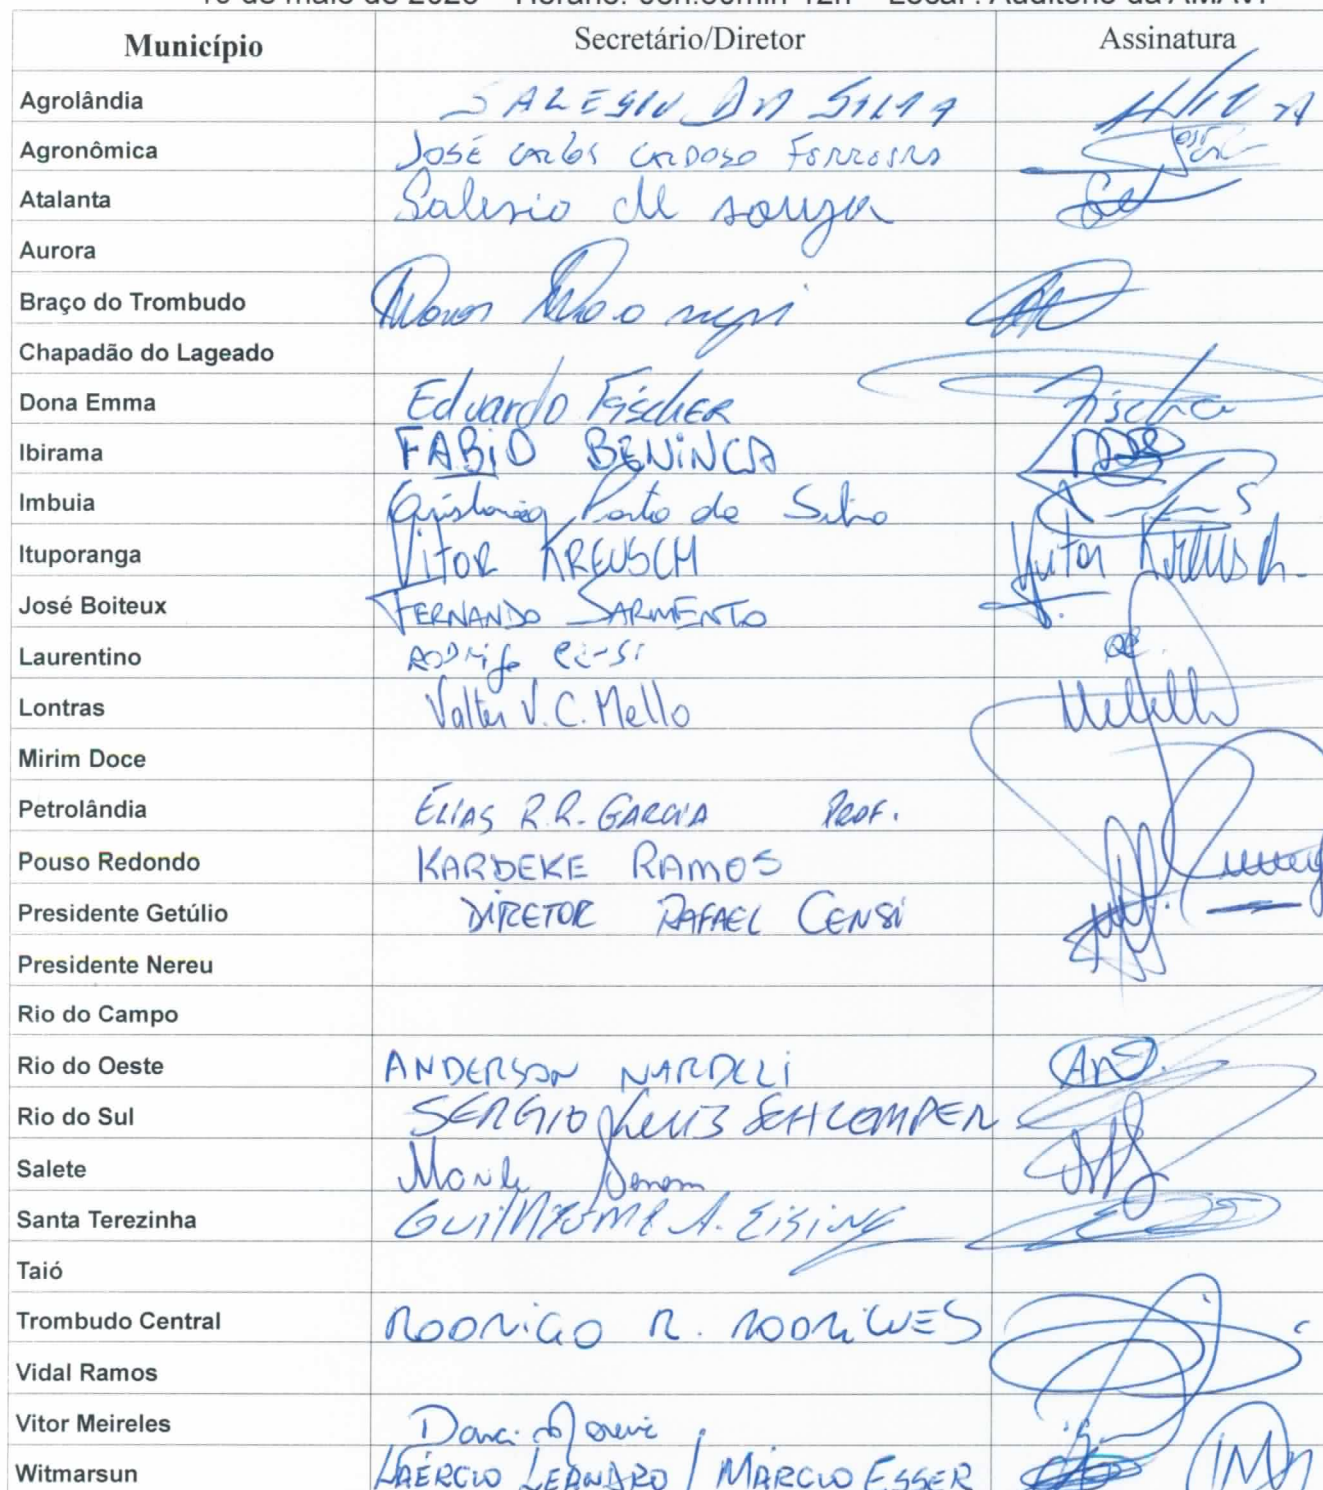 Município Secretário/Diretor Assinatura
Agrolândia SALESIO DA SILVA
Agronômica JOSÉ CARLOS CARDOSO FERREIRA
Atalanta Salesio de souza
Aurora
Braço do Trombudo
Chapadão do Lageado
Dona Emma Eduardo Fischer Fischer
Ibirama FABIO BENINCA
Imbuia Porto da Silva
Ituporanga VITOR KREUSCH Vitor Kreusch
José Boiteux FERNANDO SARMENTO
Laurentino RODRIGO
Lontras Valter V. C. Mello
Mirim Doce
Petrolândia ELIAS R.R. GARCIA PROF.
Pouso Redondo KARDEKE RAMOS
Presidente Getúlio DIRETOR RAFAEL CENSI
Presidente Nereu
Rio do Campo
Rio do Oeste ANDERSON NARDELI
Rio do Sul SERGIO LUIZ SCHLEMPER
Salete
Santa Terezinha GUILHERME A. EISING
Taió
Trombudo Central RODRIGO R. RODRIGUES
Vidal Ramos
Vitor Meireles
Witmarsun LAÉRCIO LEANDRO / MÁRCIO ESSER